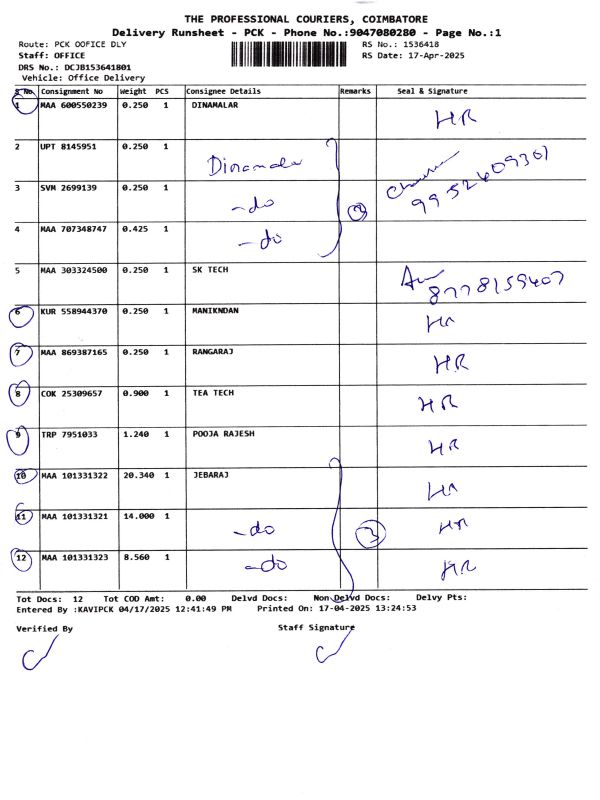 THE PROFESSIONAL COURIERS, COIMBATORE
Delivery Runsheet - PCK - Phone No.:9047080280 - Page No.:1
Route: PCK OOFICE DLY RS No.: 1536418
Staff: OFFICE RS Date: 17-Apr-2025
DRS No.: DCJB153641801
Vehicle: Office Delivery
S No. Consignment No Weight PCS Consignee Details Remarks Seal & Signature
1 MAA 600550239 0.250 1 DINAMALAR HR
2 UPT 8145951 0.250 1 Dinamala
3 SVM 2699139 0.250 1 -do 9952609361
4 MAA 707348747 0.425 1 -do
5 MAA 303324500 0.250 1 SK TECH 8778159407
6 KUR 558944370 0.250 1 MANIKNDAN HR
7 MAA 869387165 0.250 1 RANGARAJ HR
8 COK 25309657 0.900 1 TEA TECH HR
9 TRP 7951033 1.240 1 POOJA RAJESH HR
10 MAA 101331322 20.340 1 JEBARAJ HR
11 MAA 101331321 14.000 1 -do 3 HR
12 MAA 101331323 8.560 1 -do HR
Tot Docs: 12 Tot COD Amt: 0.00 Delvd Docs: Non Delvd Docs: Delvy Pts:
Entered By :KAVIPCK 04/17/2025 12:41:49 PM Printed On: 17-04-2025 13:24:53
Verified By Staff Signature